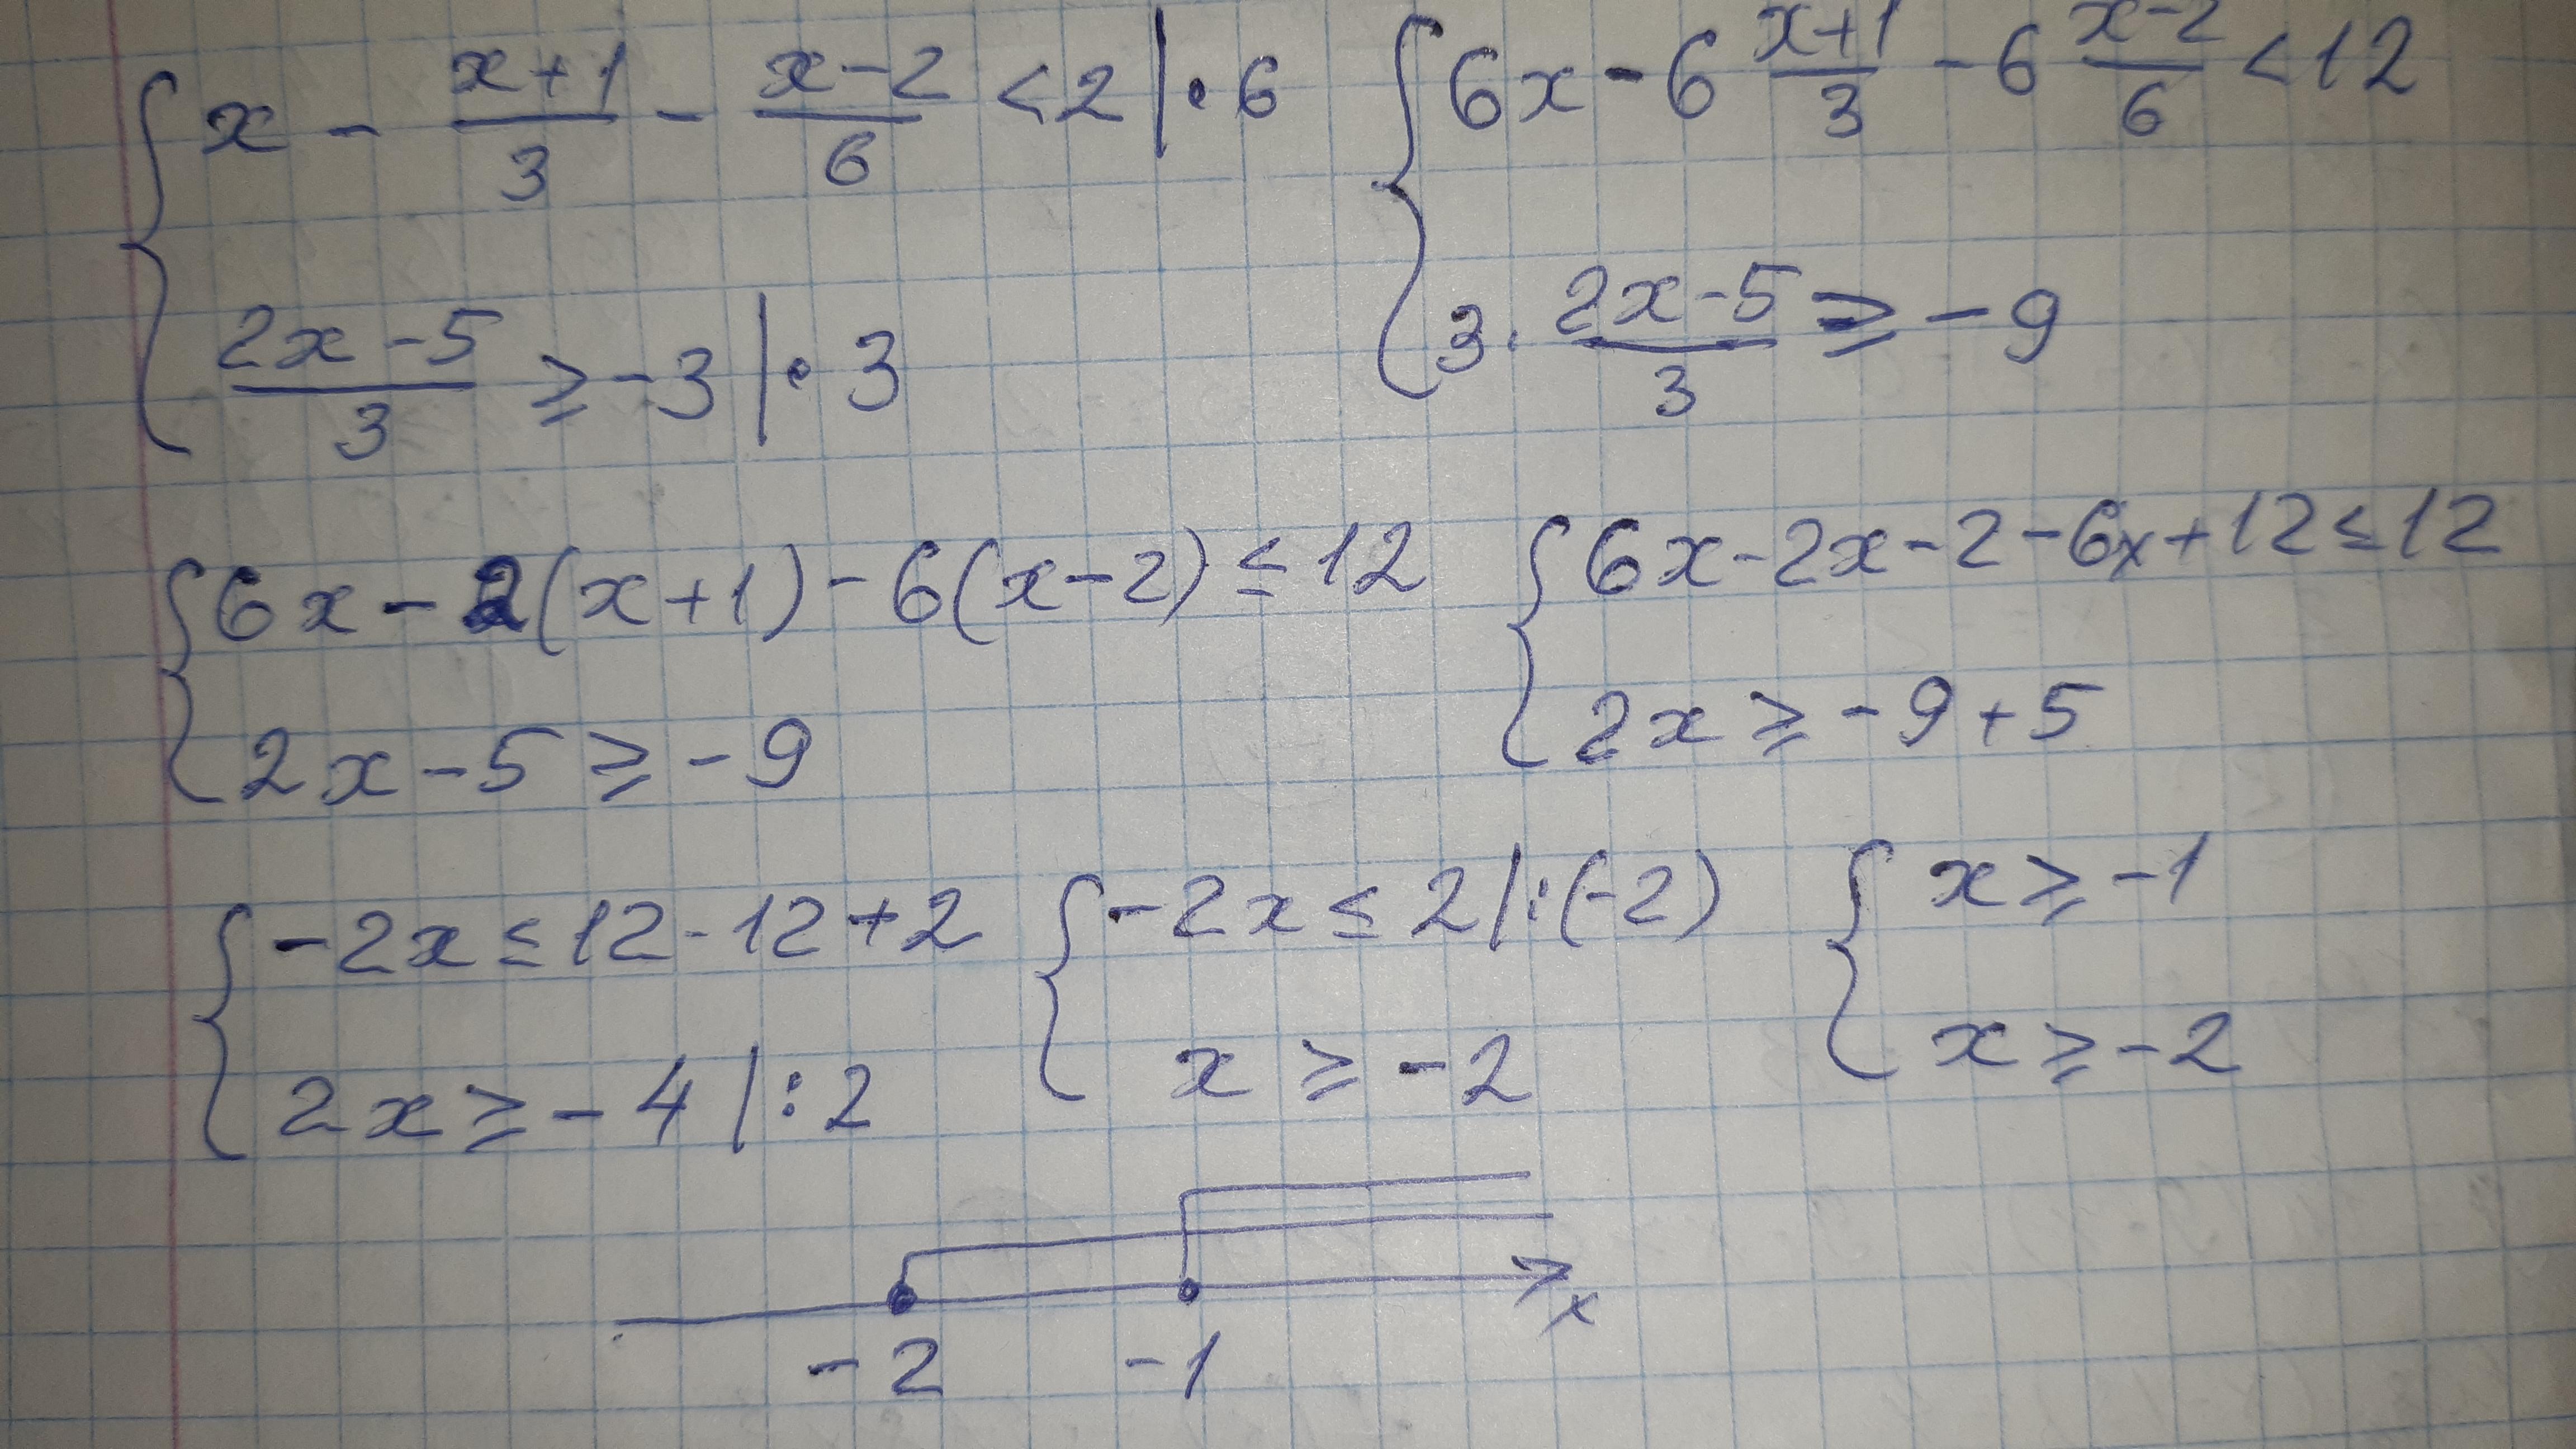 { x - (x+1)/3 - (x-2)/6 < 2 | · 6
{ (2x-5)/3 ≥ -3 | · 3
{ 6x - 6 (x+1)/3 - 6 (x-2)/6 < 12
{ 3 · (2x-5)/3 ≥ -9
{ 6x - 2(x+1) - 6(x-2) ≤ 12
{ 2x - 5 ≥ -9
{ 6x - 2x - 2 - 6x + 12 ≤ 12
{ 2x ≥ -9 + 5
{ -2x ≤ 12 - 12 + 2
{ 2x ≥ -4 | : 2
{ -2x ≤ 2 | : (-2)
{ x ≥ -2
{ x ≥ -1
{ x ≥ -2
x
-2 -1